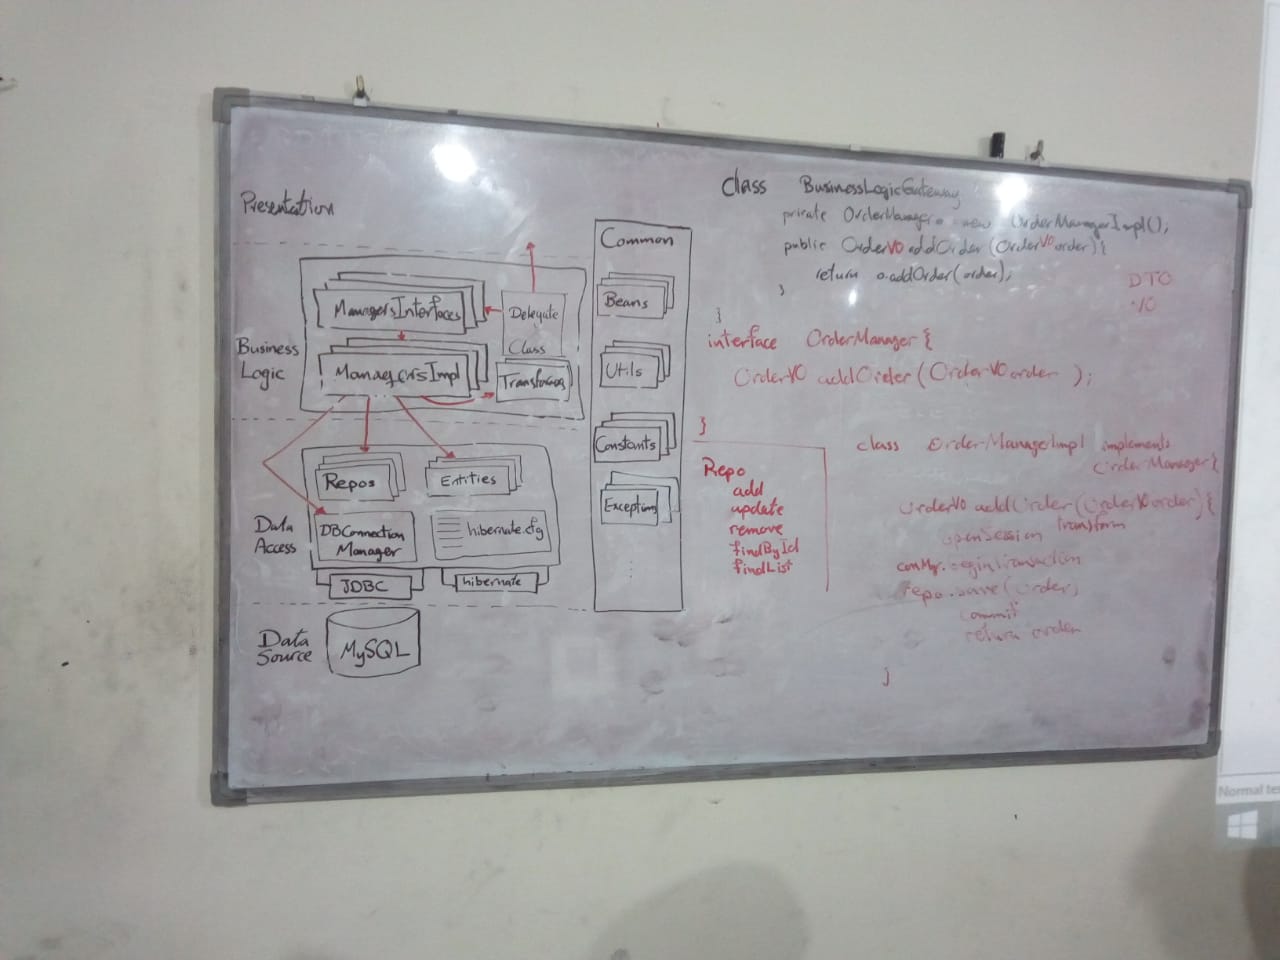 Presentation
Business
Logic
ManagersInterfaces
ManagersImpl
Delegate
Class
Transformers
Data
Access
Repos
Entities
DBConnection
Manager
hibernate.cfg
JDBC
hibernate
Data
Source
MySQL
Common
Beans
Utils
Constants
Exceptions
class BusinessLogicGateway
private OrderManager o = new OrderManagerImpl();
public OrderVO addOrder (OrderVO order){
return o.addOrder(order);
}
}
DTO
VO
interface OrderManager {
OrderVO addOrder (OrderVO order );
}
Repo
add
update
remove
findById
findList
class OrderManagerImpl implements
OrderManager {
OrderVO addOrder (OrderVO order) {
transform
openSession
conMgr.beginTransaction
repo.save(order)
commit
return order
}
Normal te